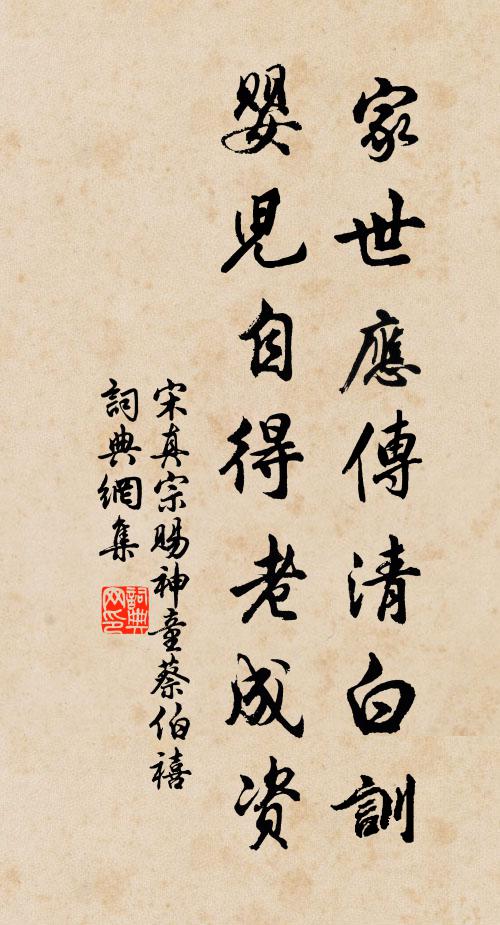 家世應傳清白訓
嬰兒自得老成資
宋真宗賜神童蔡伯禧
詞典網集
詞典
网印